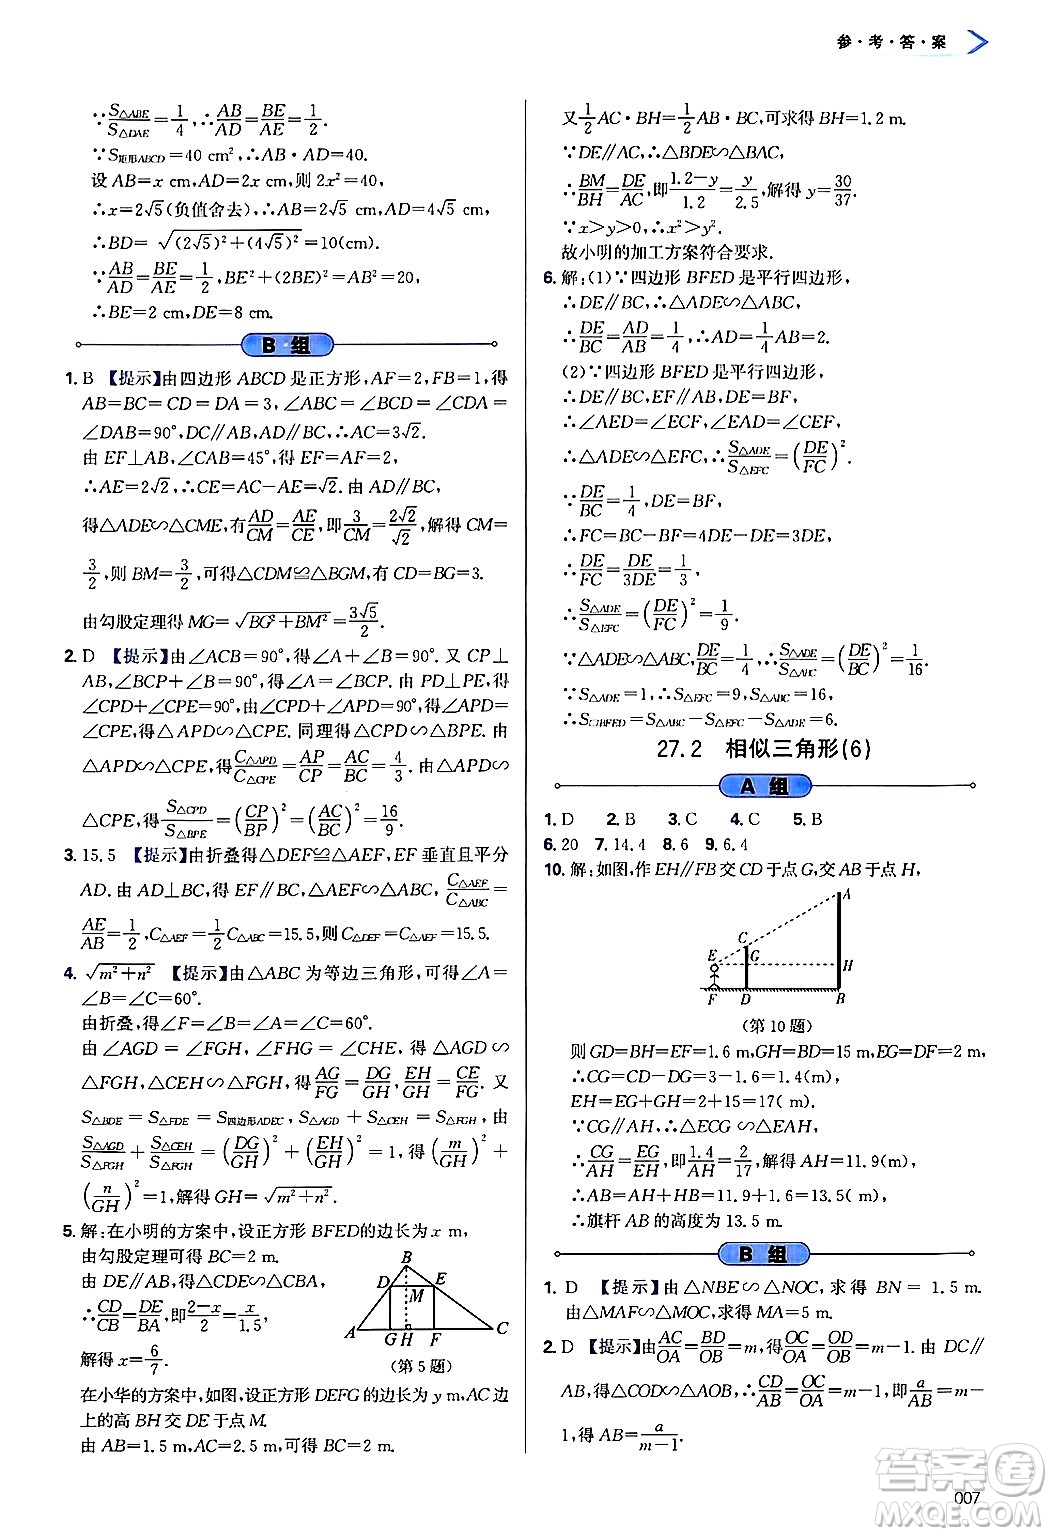 参·考·答·案
∵S△ABE/S△DAE=1/4,∴AB/AD=BE/AE=1/2.
∵S矩形ABCD=40 cm²,∴AB·AD=40.
设 AB=x cm,AD=2x cm,则 2x²=40,
∴x=2√5(负值舍去),∴AB=2√5 cm,AD=4√5 cm,
∴BD=√((2√5)²+(4√5)²)=10(cm).
∵AB/AD=BE/AE=1/2,BE²+(2BE)²=AB²=20,
∴BE=2 cm,DE=8 cm.
B 组
1. B 【提示】由四边形 ABCD 是正方形,AF=2,FB=1,得
AB=BC=CD=DA=3,∠ABC=∠BCD=∠CDA=
∠DAB=90°,DC∥AB,AD∥BC,∴AC=3√2.
由 EF⊥AB,∠CAB=45°,得 EF=AF=2,
∴AE=2√2,∴CE=AC-AE=√2.由 AD∥BC,
得△ADE∽△CME,有AD/CM=AE/CE,即3/CM=2√2/√2,解得 CM=
3/2,则 BM=3/2,可得△CDM≌△BGM,有 CD=BG=3.
由勾股定理得 MG=√(BG²+BM²)=3√5/2.
2. D 【提示】由∠ACB=90°,得∠A+∠B=90°.又 CP⊥
AB,∠BCP+∠B=90°,得∠A=∠BCP.由 PD⊥PE,得
∠CPD+∠CPE=90°,由∠CPD+∠APD=90°,得∠APD=
∠CPE,得△APD∽△CPE.同理,得△CPD∽△BPE.由
△APD∽△CPE,得C△APD/C△CPE=AP/CP=AC/BC=4/3.由△CPD∽
△CPE,得S△CPD/S△BPE=(CP/BP)²=(AC/BC)²=16/9.
3. 15.5 【提示】由折叠得△DEF≌△AEF,EF 垂直且平分
AD.由 AD⊥BC,得 EF∥BC,△AEF∽△ABC,得C△AEF/C△ABC=
AE/AB=1/2,C△AEF=1/2C△ABC=15.5,C△DEF=C△AEF=15.5.
4. √(m²+n²) 【提示】由△ABC 为等边三角形,可得∠A=
∠B=∠C=60°.
由折叠,得∠F=∠B=∠A=∠C=60°.
由∠AGD=∠FGH,∠FHG=∠CHE,得△AGD∽
△FGH,△CEH∽△FGH,得AG/FG=DG/GH,EH/GH=CE/FG.又
S△BDE=S△FDE=S四边形ADEC,S△AGD+S△CEH=S△FGH,由
S△AGD/S△FGH+S△CEH/S△FGH=(DG/GH)²+(EH/GH)²=1,得(m/GH)²+
(n/GH)²=1,解得 GH=√(m²+n²).
5. 解:在小明的方案中,设正方形 BFED的边长为 x m,
由勾股定理可得 BC=2 m.
由 DE∥AB,得△CDE∽△CBA,
∴CD/CB=DE/BA,即(2-x)/2=x/1.5,
解得 x=6/7.
B
D
M
E
A
G
H
F
C
(第 5 题)
在小华的方案中,如图,设正方形 DEFG 的边长为 y m,AC 边
上的高 BH 交 DE 于点 M.
由 AB=1.5 m,AC=2.5 m,得 BC=2 m.
又1/2AC·BH=1/2AB·BC,可求得 BH=1.2 m.
∵DE∥AC,∴△BDE∽△BAC,
∴BM/BH=DE/AC,即(1.2-y)/1.2=y/2.5,解得 y=30/37.
∵x>y>0,∴x²>y².
故小明的加工方案符合要求.
6. 解:(1)∵四边形 BFED 是平行四边形,
∴DE∥BC,∴△ADE∽△ABC,
∴DE/BC=AD/AB=1/4,∴AD=1/4AB=2.
(2)∵四边形 BFED 是平行四边形,
∴DE∥BC,EF∥AB,DE=BF,
∴∠AED=∠ECF,∠EAD=∠CEF,
∴△ADE∽△EFC,∴S△ADE/S△EFC=(DE/FC)².
∵DE/BC=1/4,DE=BF,
∴FC=BC-BF=4DE-DE=3DE,
∴DE/FC=DE/3DE=1/3,
∴S△ADE/S△EFC=(DE/FC)²=1/9.
∵△ADE∽△ABC,DE/BC=1/4,∴S△ADE/S△ABC=(DE/BC)²=1/16.
∵S△ADE=1,∴S△EFC=9,S△ABC=16,
∴S▱BFED=S△ABC-S△EFC-S△ADE=6.
27.2 相似三角形(6)
A 组
1. D 2. B 3. C 4. C 5. B
6. 20 7. 14.4 8. 6 9. 6.4
10. 解:如图,作 EH∥FB 交 CD于点 G,交 AB于点 H,
A
C
E
G
H
F
D
B
(第 10 题)
则 GD=BH=EF=1.6 m,GH=BD=15 m,EG=DF=2 m,
∴CG=CD-GD=3-1.6=1.4(m),
EH=EG+GH=2+15=17(m).
∵CG∥AH,∴△ECG∽△EAH,
∴CG/AH=EG/EH,即1.4/AH=2/17,解得 AH=11.9(m),
∴AB=AH+BH=11.9+1.6=13.5(m),
∴旗杆 AB 的高度为 13.5 m.
B 组
1. D 【提示】由△NBE∽△NOC,求得 BN=1.5 m.
由△MAF∽△MOC,求得 MA=5 m.
2. D 【提示】由AC/OA=BD/OB=m,得OC/OA=OD/OB=m-1.由 DC∥
AB,得△COD∽△AOB,∴CD/AB=OC/OA=m-1,即a/AB=m-
1,得 AB=a/(m-1).
答案圈
MXQE.COM
007